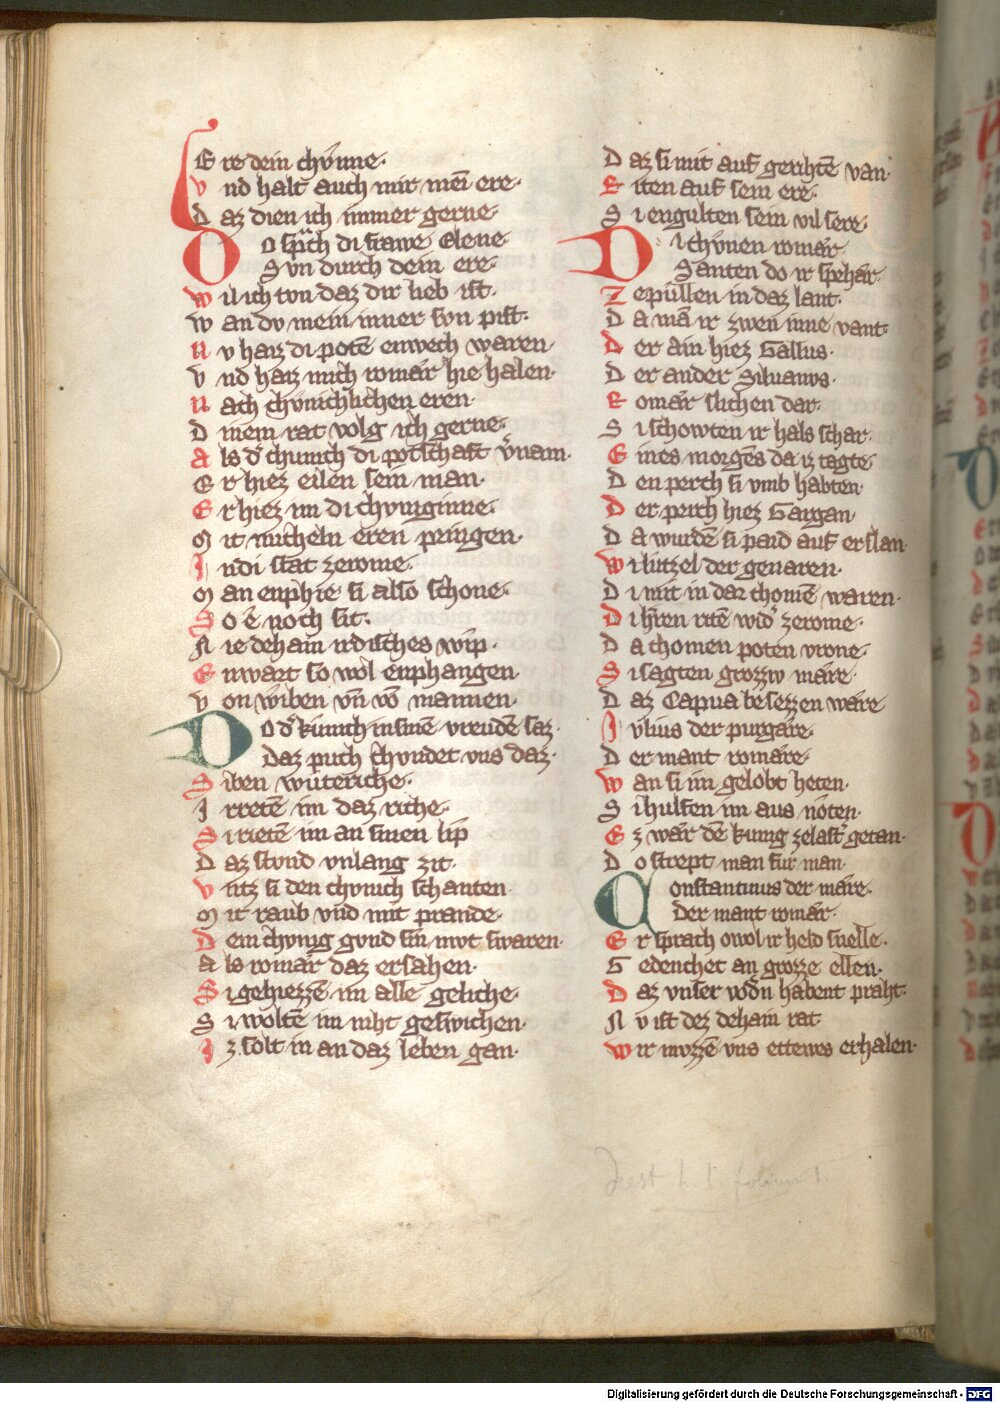 Ere dein chvnne·
vnd halt auch mit mei ere·
Daz dien ich immer gerne
Do sprach di frawe Elene·
Svn durch dein ere·
wil ich tvn daz dir lieb ist·
wan dv mein inner svn pist·
Nv haiz di potē enwech waren·
vnd haiz mich romar hie halen·
Nach chvnichlichen eren·
Dinem rat volg ich gerne·
Als dͤ chunich di potschaft vͤnam·
Er hiez eilen sein man·
Er hiez im di chvniginne·
Mit micheln eren pringen·
Indi stat zerome·
Man enphie si also schone·
So ê noch sit·
Nie dehain irdisches wip·
Enwart so wol enphangen
von wiben vn̄ vō mannen·
Do dͤ kunich in sinē vreudē saz·
Daz puch chvndet vns daz·
Siben wuteriche·
Irretē im daz riche·
Si rietē im an sinen lip
Daz stvnd vnlang zit·
vntz si den chvnich schanten
Mit raub vnd mit prande·
Dem chvnig gvnd sin mvt swaren·
Als romar daz ersahen·
Si gehiezzē im alle geliche·
Si woltē im niht geswichen·
Iz solt in an daz leben gan·
Daz si mit auf gerihtē van·
Riten auf sem ere·
Si engulten sein vil sere·
Di chvnen romar
Santen do ir spehar·
Zepullen in daz lant·
Da mā ir zwen inne vant
Der ain hiez Gallus·
Der ander Siluanvs·
Romar slichen dar·
Si schowten ir hals schar·
Eines morgēs da iz tagte
Den perch si vmb habten·
Der perch hiez Gargan·
Da wurdē si paid auf erslan
wi lutzel der genaren·
Di mit in dar chomē waren·
Di hͤren ritē widͤ zerome·
Da chomen poten vrone·
Si sagten grozzw mare·
Daz Capua besezzen ware
Ivlius der purgare·
Der mant romare·
wan si im gelobt heten·
Si hulfen im aus noten·
Ez war dē kunig zelastͤ getan·
Do strept man fur man·
Constantinus der mare·
Der mant romar·
Er sprach owol ir held snelle·
Gedenchet an grozze ellen·
Daz vnser vodͤn habent praht·
Nv ist dez dehain rat
wir mvzzē vns ettewes erhalen·
deest h. l. folium 1.
Digitalisierung gefördert durch die Deutsche Forschungsgemeinschaft - DFG